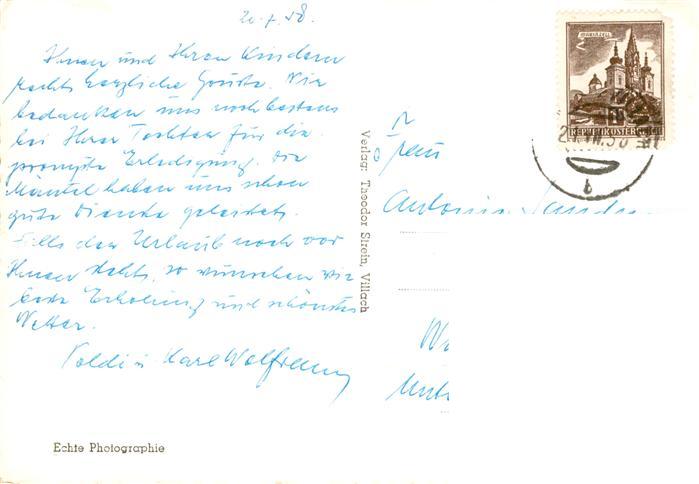 20.7.58.
Ihnen und Ihren Kindern
recht herzliche Grüße. Wir
bedanken uns noch bestens
bei Ihrer Tochter für die
prompte Erledigung. Die
Mäntel haben uns schon
gute Dienste geleistet.
Falls der Urlaub noch vor
Ihnen steht, so wünschen wir
gute Erholung und schönstes
Wetter.
Poldi u Karl Wolfram
Echte Photographie
Verlag: Theodor Strein, Villach
MARIAZELL
REPUBLIK ÖSTERREICH
Frau
Antonia